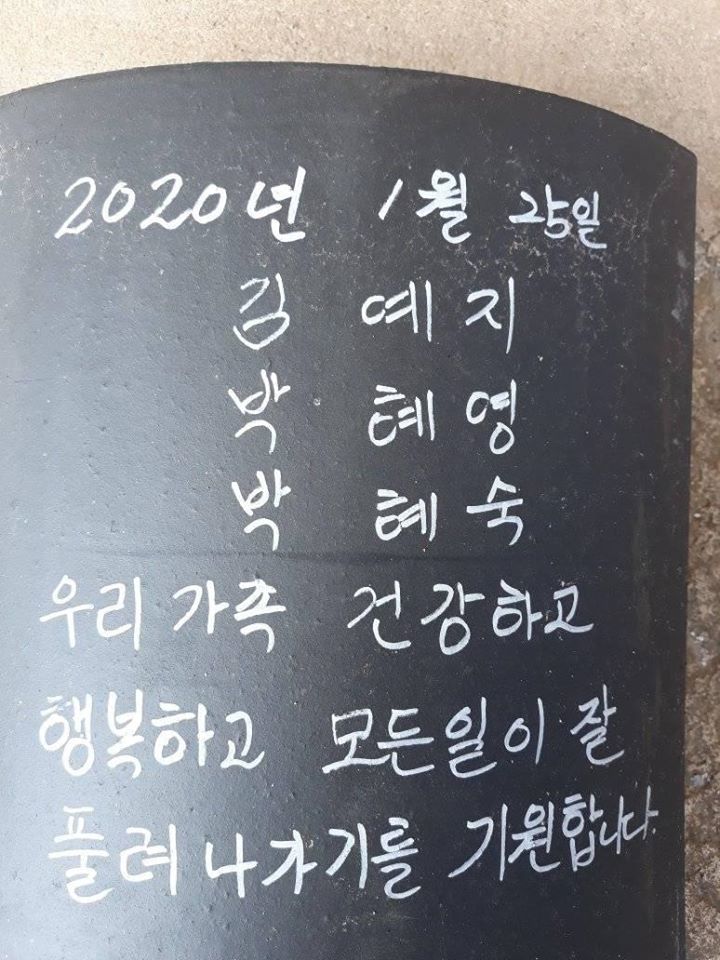 2020년 1월 25일
김 예지
박 혜영
박 혜숙
우리가족 건강하고
행복하고 모든일이 잘
풀려나가기를 기원합니다.